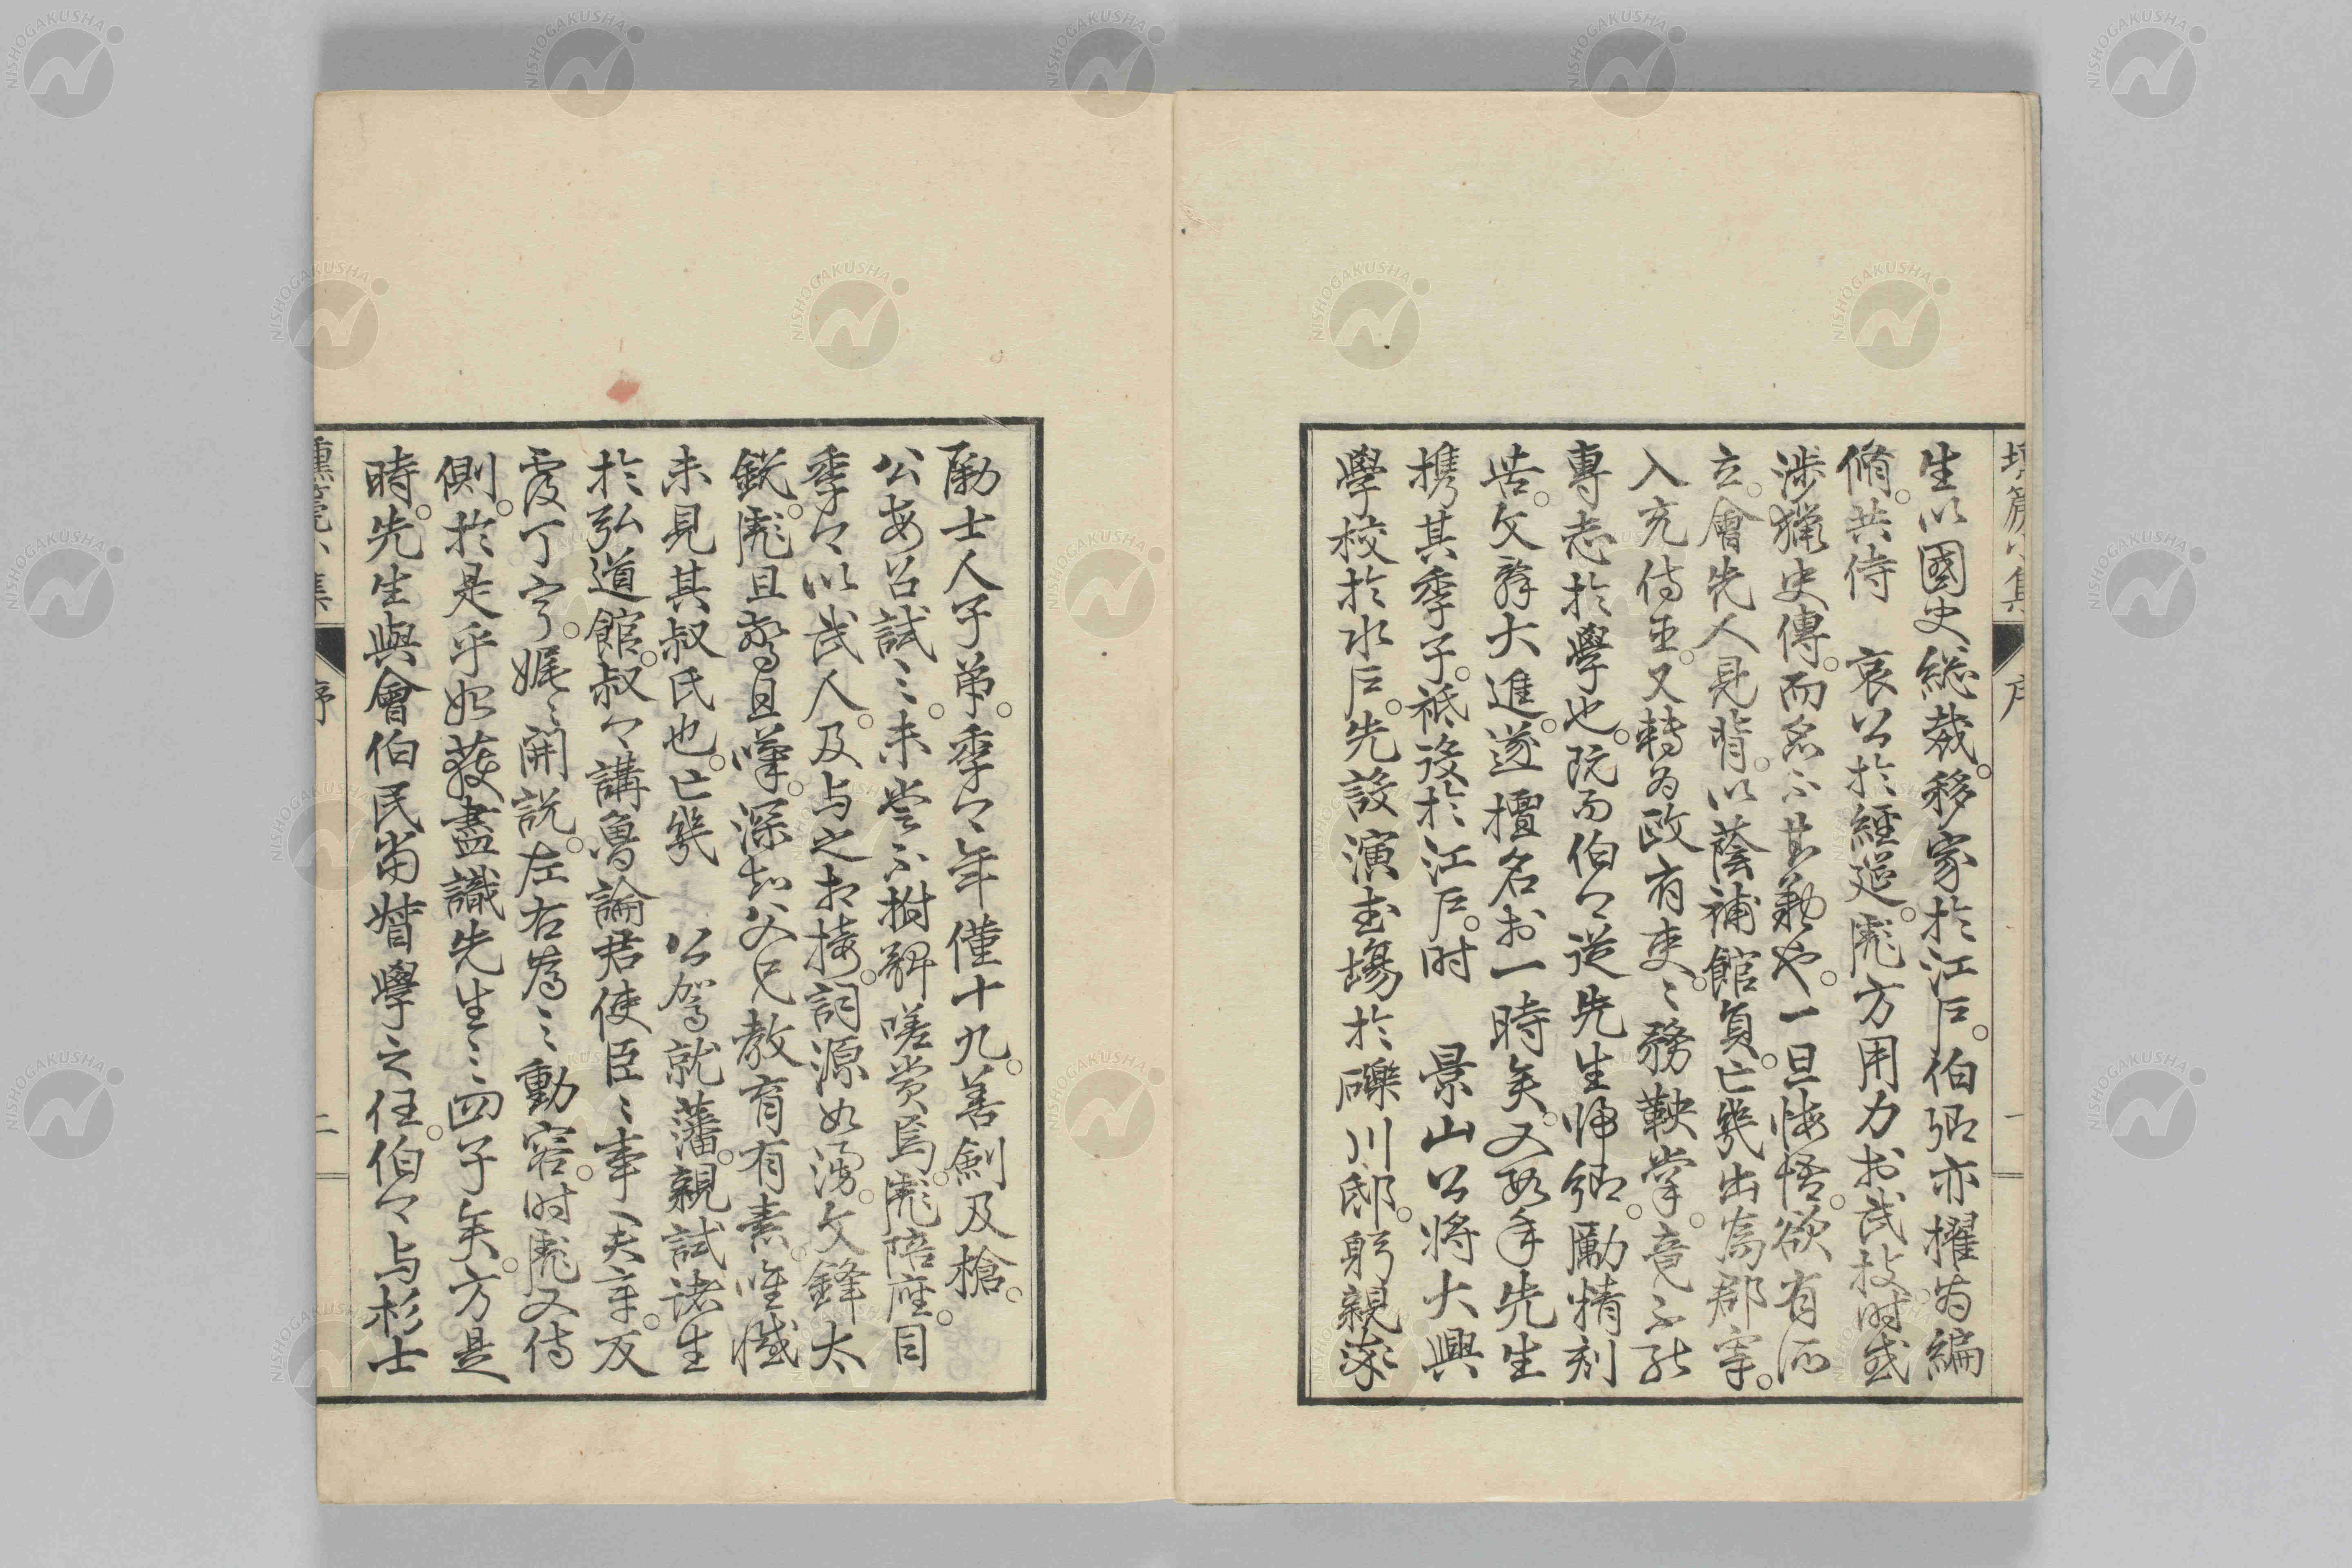 生以國史総裁。移家於江戸。伯卿亦擢为編
脩。共侍 哀公於經筵。彪方用力於武技。时或
渉獵史傳。而名不甚勤也。一旦悔悟。欲有所
立。會先人見背。以蔭補館負。亡幾出為郡宰。
入充侍臣。又轉为政府吏。々務鞅掌。竟不能
專志於學也。既而伯々從先生帰郷。勵精刻
苦。文辞大進。遂擅名於一時矣。又数年先生
携其季子。祗役於江戸。时 景山公将大興
學校於水戸。先設演武場於礫川邸。躬親率
勵士人子弟。季々年僅十九。善劍及槍。
公毎召試。々未嘗不拊髀嗟賞焉。彪陪座。目
季々以武人。及与之相接。詞源如湧。文鋒太
鋭。彪且驚且嘆。深知父兄教育有素。唯憾
未見其叔氏也。亡幾 公駕就藩。親試諸生
於弘道館。叔々講魯論君使臣々事夫章。反
覆丁寧。娓々開説。左右為之動容。时彪又侍
側。於是乎始獲盡識先生之四子矣。方是
時。先生與會伯民甞督學之任。伯々与杉士
塤箎小集 序 一
塤箎小集 序 二
NISHOGAKUSHA